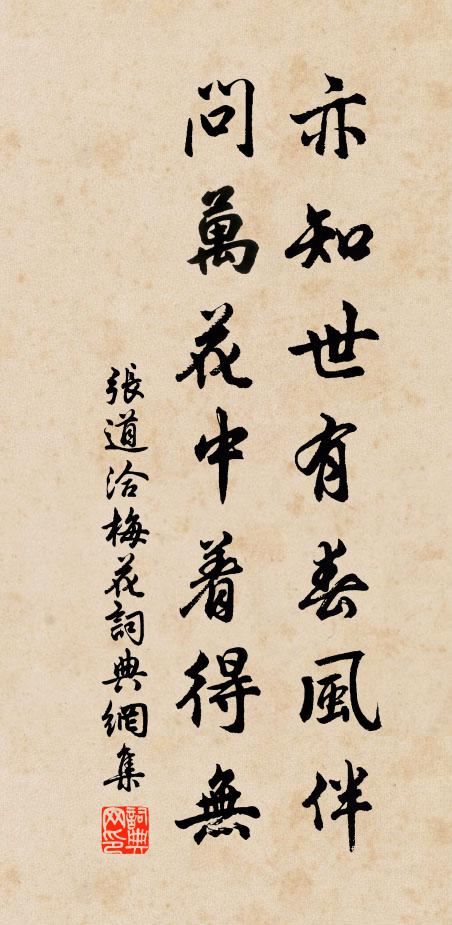 亦知世有春風伴
問萬花中着得無
張道洽梅花詞典網集
詞典网印